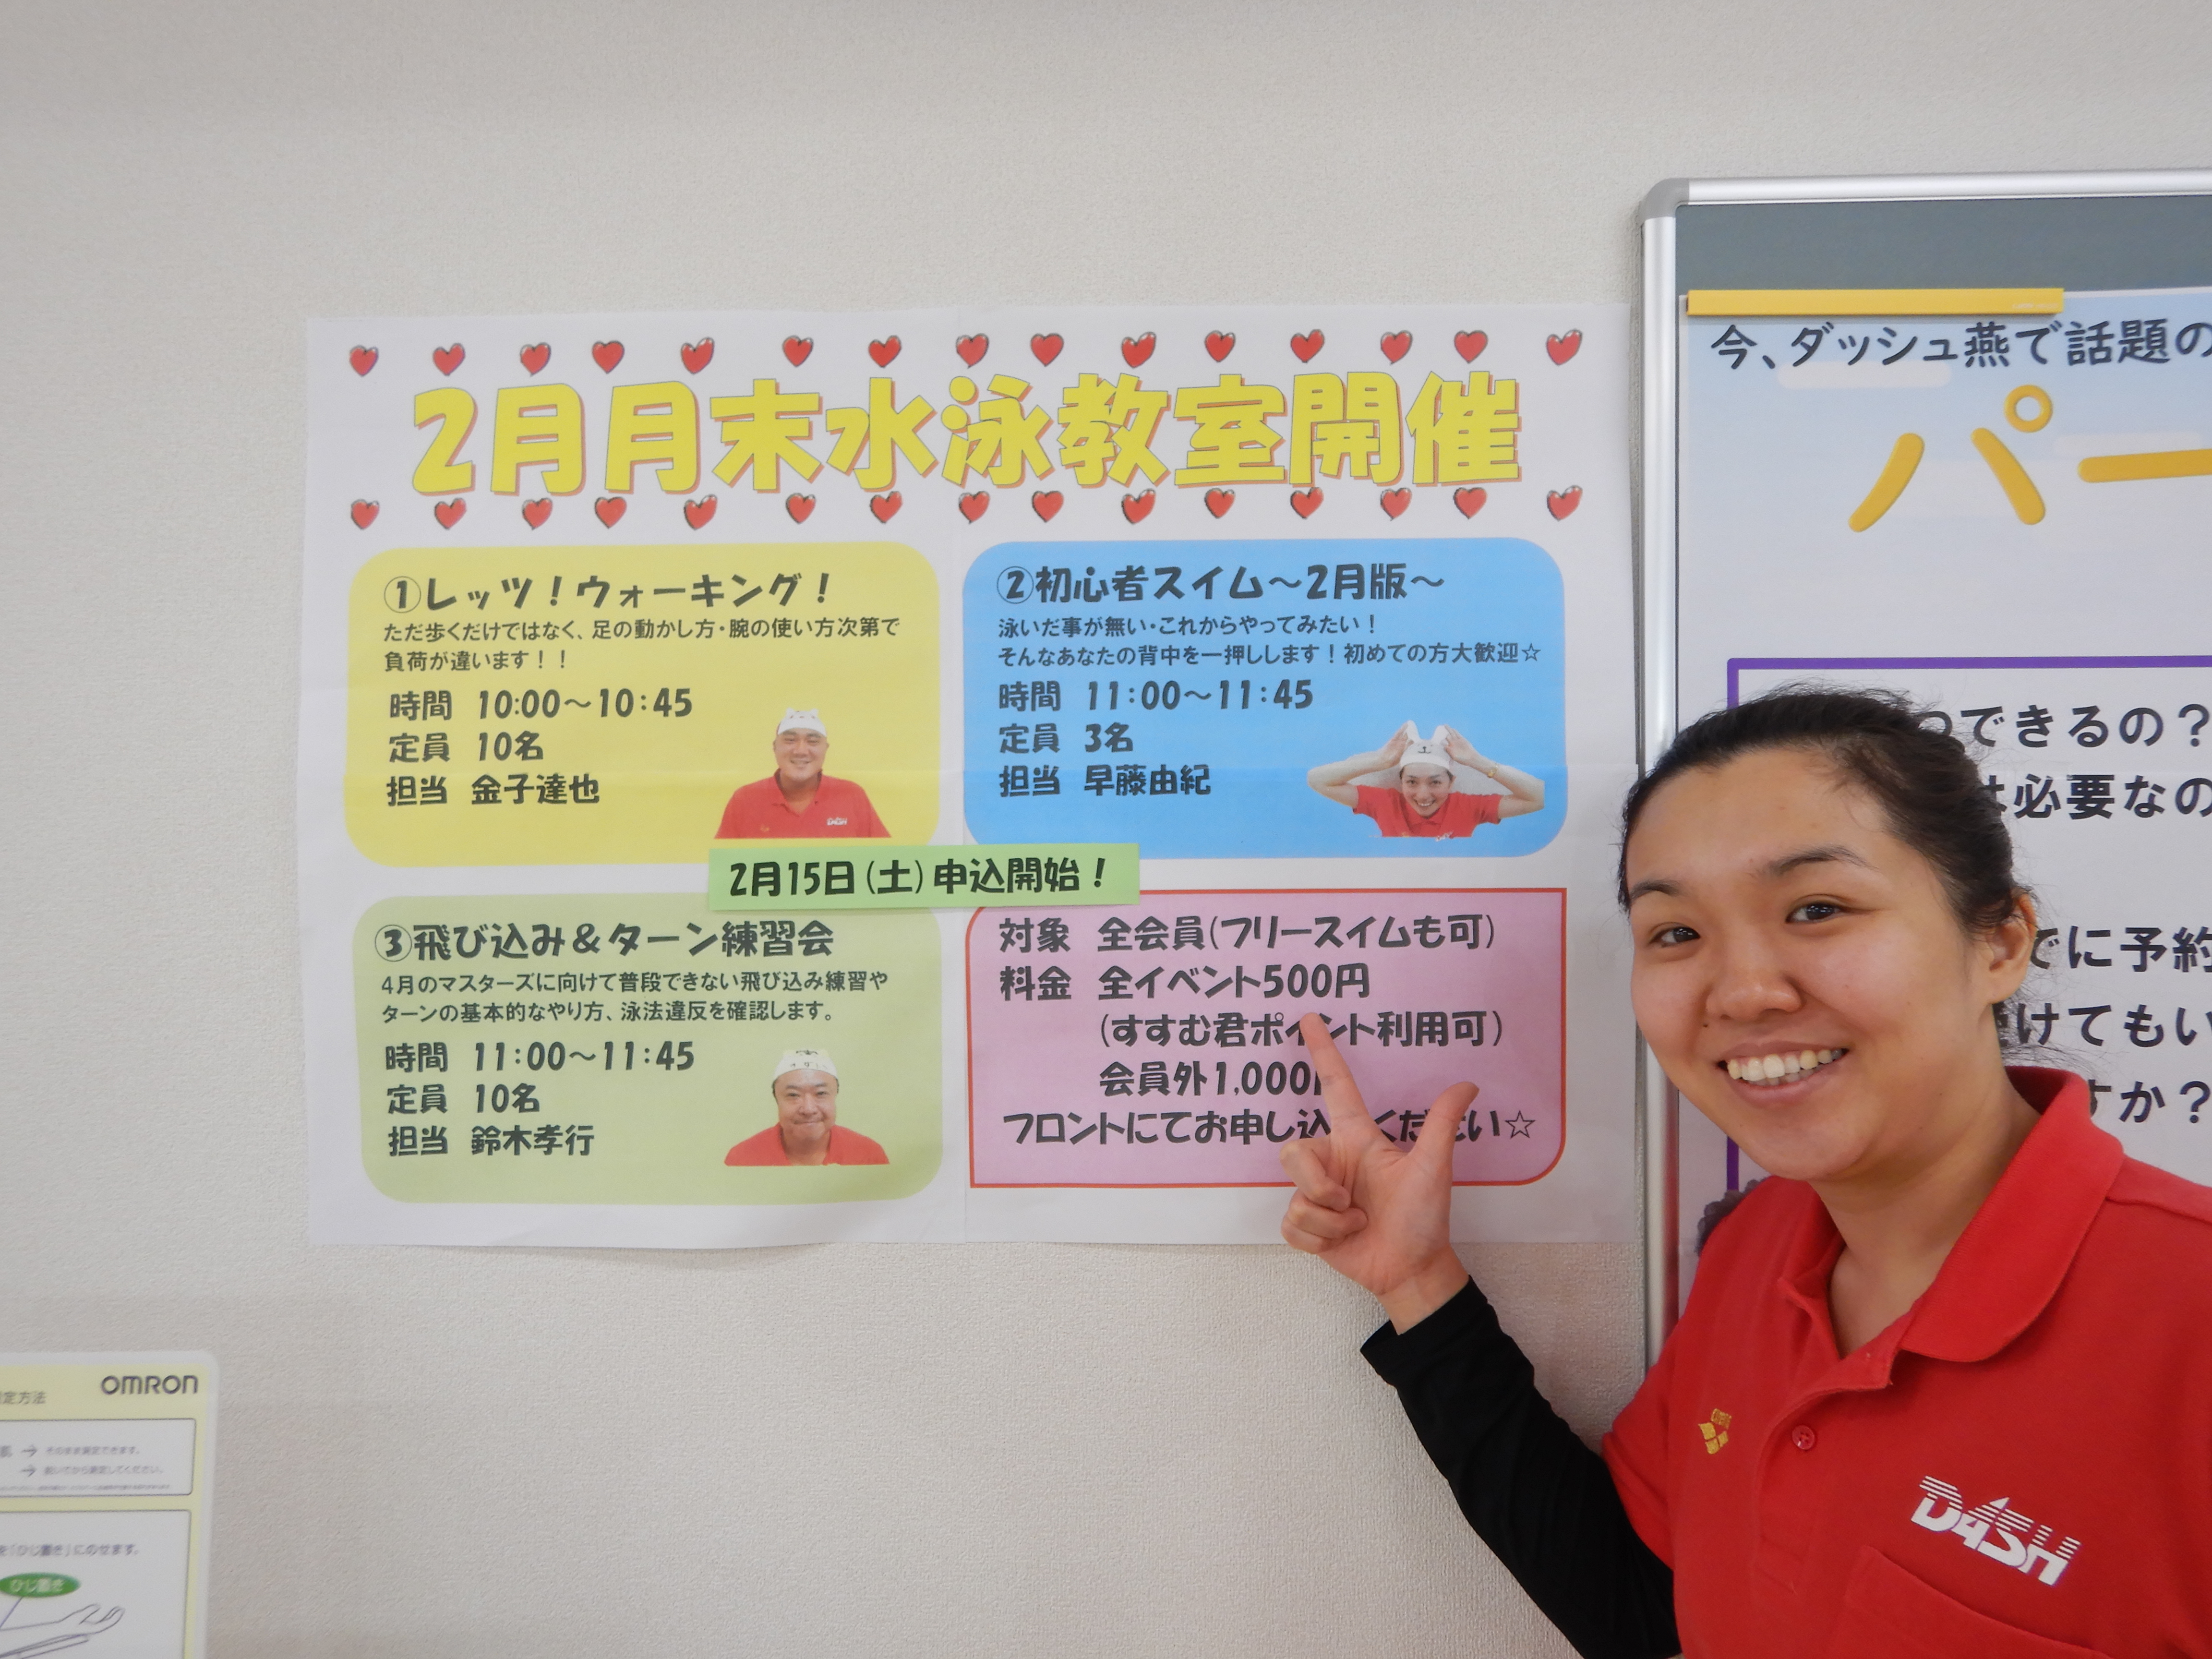 2月月末水泳教室開催
①レッツ！ウォーキング！
ただ歩くだけではなく、足の動かし方・腕の使い方次第で
負荷が違います！！
時間 10:00～10:45
定員 10名
担当 金子達也
②初心者スイム～2月版～
泳いだ事が無い・これからやってみたい！
そんなあなたの背中を一押しします！初めての方大歓迎☆
時間 11:00～11:45
定員 3名
担当 早藤由紀
2月15日(土)申込開始！
③飛び込み＆ターン練習会
4月のマスターズに向けて普段できない飛び込み練習や
ターンの基本的なやり方、泳法違反を確認します。
時間 11:00～11:45
定員 10名
担当 鈴木孝行
対象 全会員(フリースイムも可)
料金 全イベント500円
(すすむ君ポイント利用可)
会員外1,000
フロントにてお申し込 ください☆
今、ダッシュ燕で話題の
パー
できるの？
必要なの
でに予約
けてもい
すか？
arena
DASH
OMRON
定方法
→ そのまま測定できます。
→ 拭いてから測定してください。
を「ひじ置き」にのせます。
ひじ置き